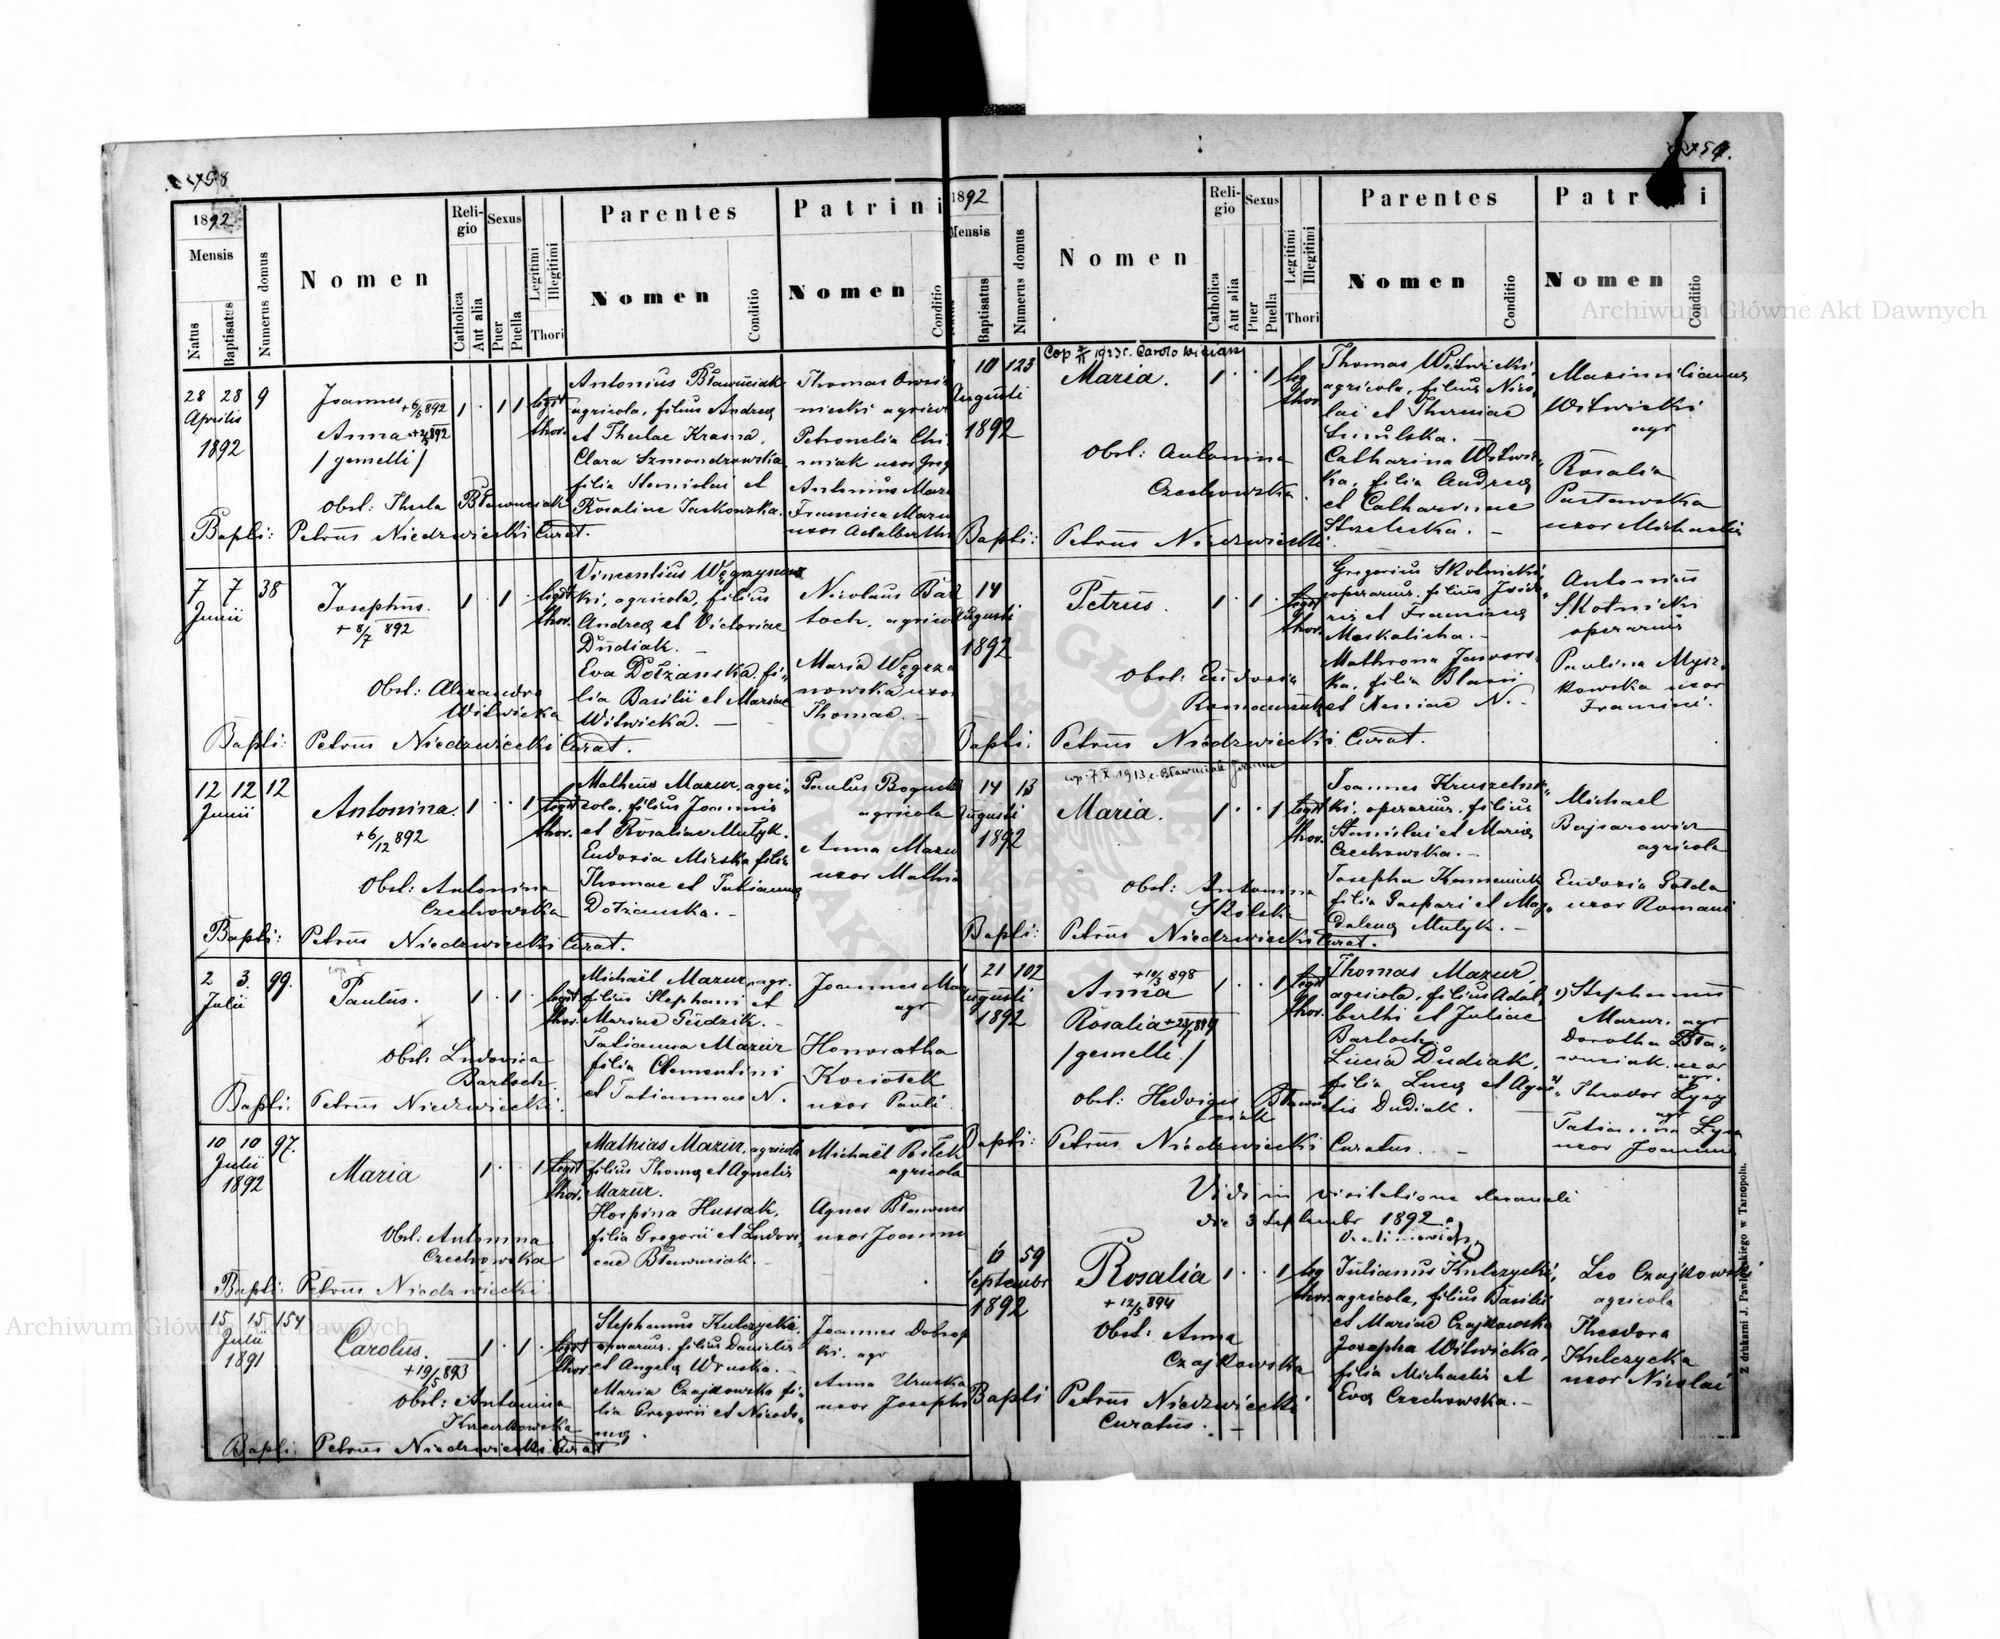 458
1892
Mensis
Natus
Baptisatus
Numerus domus
Nomen
Religio
Catholica
Aut alia
Sexus
Puer
Puella
Legitimi
Illegitimi
Thori
Parentes
Nomen
Conditio
Patrini
Nomen
Conditio
28 28 9
Aprilis
1892
Joannes +6/5 892
Anna
/gemelli/
Obst: Thecla Bławuciak
1 · 1 1
legit
thor.
Antonius Bławuciak
agricola, filius Andreae
et Theclae Krasna.
Clara Szmondrowska
filia Stanislai et
Rosaliae Jaskowska.
Thomas
niecki agricol
Petronelia
uxor Greg
Antonius Mazu
Francisca Mazu
uxor Adalberthi
Bapti: Petrus Niedzwiecki Curat.
7 7 38
Junii
Josephus.
+ 8/7 892
Obst: Alexandra
Witwicka
1 · 1 ·
legit
thor.
Vincentius Węgrzynows
ki, agricola, filius
Andreae et Victoriae
Dudiak. —
Eva Dołżanska, fi-
lia Basilii et Mariae
Witwicka. —
Nicolaus Bar
toch, agrico
Maria Węgrzy
nowska uxor
Thomae. —
Bapti: Petrus Niedzwiecki Curat.
12 12 12
Junii
Antonina.
+ 6/12 892
Obst: Antonina
Czechowska
1 · · 1
legit
thor.
Matheus Mazur, agri-
cola, filius Joannis
et Rosaliae Mułyk.
Eudoxia Mirska filia
Thomae et Tatianna
Dołżanska. —
Paulus Boguck
agricola
Anna Mazu
uxor Mathia
Bapti: Petrus Niedzwiecki Curat.
2 3. 99.
Julii
Paulus.
Obst: Ludovica
Bartoch
1 · 1 ·
legit
thor.
Michaël Mazur, agr.
filius Stephani et
Mariae Gudzik. —
Tatianna Mazur
filia Clementini
et Tatiannae N.
Joannes Maz
agr
Honoratha
Kociołek
uxor Pauli
Bapti: Petrus Niedzwiecki.
10 10 97.
Julii
1892
Maria
Obst: Antonina
Czechowska
1 · · 1
legit
thor.
Mathias Mazur, agricola
filius Thomae et Agnetis
Mazur.
Horpina Hussak,
filia Gregorii et Ludovi-
cae Bławuciak.
Michaël
agricola
Agnes Bławuci
uxor Joannis
Bapti: Petrus Niedzwiecki.
15 15 154
Julii
1891
Carolus.
+19/5 893
Obst: Antonina
1 · 1 ·
legit
thor.
Stephanus Kulczycki
operarius, filius Danielis
et Angela Wruska.
Maria Czajkowska fi-
lia Gregorii et Nicode-
Joannes Dobrop
ki. agr
Anna Uruska
uxor Josephi
Bapti: Petrus Niedzwiecki Curat
459.
1892
Mensis
Baptisatus
Numerus domus
Nomen
Religio
Catholica
Aut alia
Sexus
Puer
Puella
Legitimi
Illegitimi
Thori
Parentes
Nomen
Conditio
Patrini
Nomen
Conditio
10 123
Augusti
1892
Maria.
Obst: Antonina
Czechowska.
1 · · 1
leg
thor
Thomas Witwicki,
agricola, filius Nico-
lai et Theresiae
Smulska. —
Catharina Witwic-
ka, filia Andreae
et Catharinae
Strzelecka. —
Maximilianus
Witwicki
agr
Rosalia
Pasławska
uxor Michaelis
Bapti: Petrus Niedzwiecki.
14
Augusti
1892
Petrus.
Obst: Eudoxia
Romanczuk
1 · 1 ·
legit
thor.
Gregorius Skolnicki,
operarius, filius Isido-
ri et Francisca
Moskalicha. —
Mathrona Jawors-
ka, filia Blasii
et Xeniae N. —
Antonius
Skolnicki
operarius
Paulina Mysz-
kowska uxor
Francisci.
Bapti: Petrus Niedzwiecki Curat.
cop. 7.X.1913 c. Bławuciak Joanne
14 13
Augusti
1892
Maria.
Obst: Antonina
Skolski
1 · · 1
legit
thor.
Joannes Kruszelnic-
ki, operarius, filius
Stanislai et Maria
Czechowska. —
Josepha Kamieniuk
filia Gaspari et Mag-
dalena Mułyk. —
Michael
Bajsarowicz
agricola
Eudoxia Gołda
uxor Romani
Bapti: Petrus Niedzwiecki Curat.
21 102
Augusti
1892
+10/3 898
Anna
Rosalia
/gemelli/
Obst: Hedvigis Bławu-
ciak
1 · · 1
legit
thor.
Thomas Mazur,
agricola, filius Adal-
berthi et Juliae
Bartoch.
Lucia Dudiak,
filia Lucae et Agne-
tis Dudiak. —
1) Stephanus
Mazur. agr
Dorothea Bła-
wuciak. uxor
agr.
2) Theodor Lysy
agr
Tatianna Lysa
uxor Joannis
Bapti: Petrus Niedzwiecki Curatus. —
Vidi in visitatione decanali
die 3 Septembr 1892.
6 59
Septembr
1892
Rosalia
+ 12/5 894
Obst: Anna
Czajkowska
1 · · 1
leg
thor.
Julianus Kulczycki,
agricola, filius Basilii
et Mariae Czajkowska
Josepha Witwicka,
filia Michaelis et
Eva Czechowska. —
Leo Czajkowski
agricola
Theodora
Kulczycka
uxor Nicolai
Bapti Petrus Niedzwiecki
Curatus. —
Z drukarni J. Pawłowskiego w Tarnopolu.
Archiwum Główne Akt Dawnych
Archiwum Główne Akt Dawnych